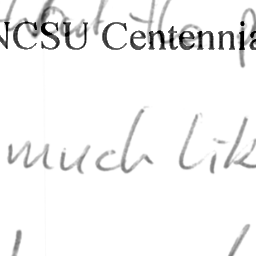 the p
NCSU Centennia
much lik